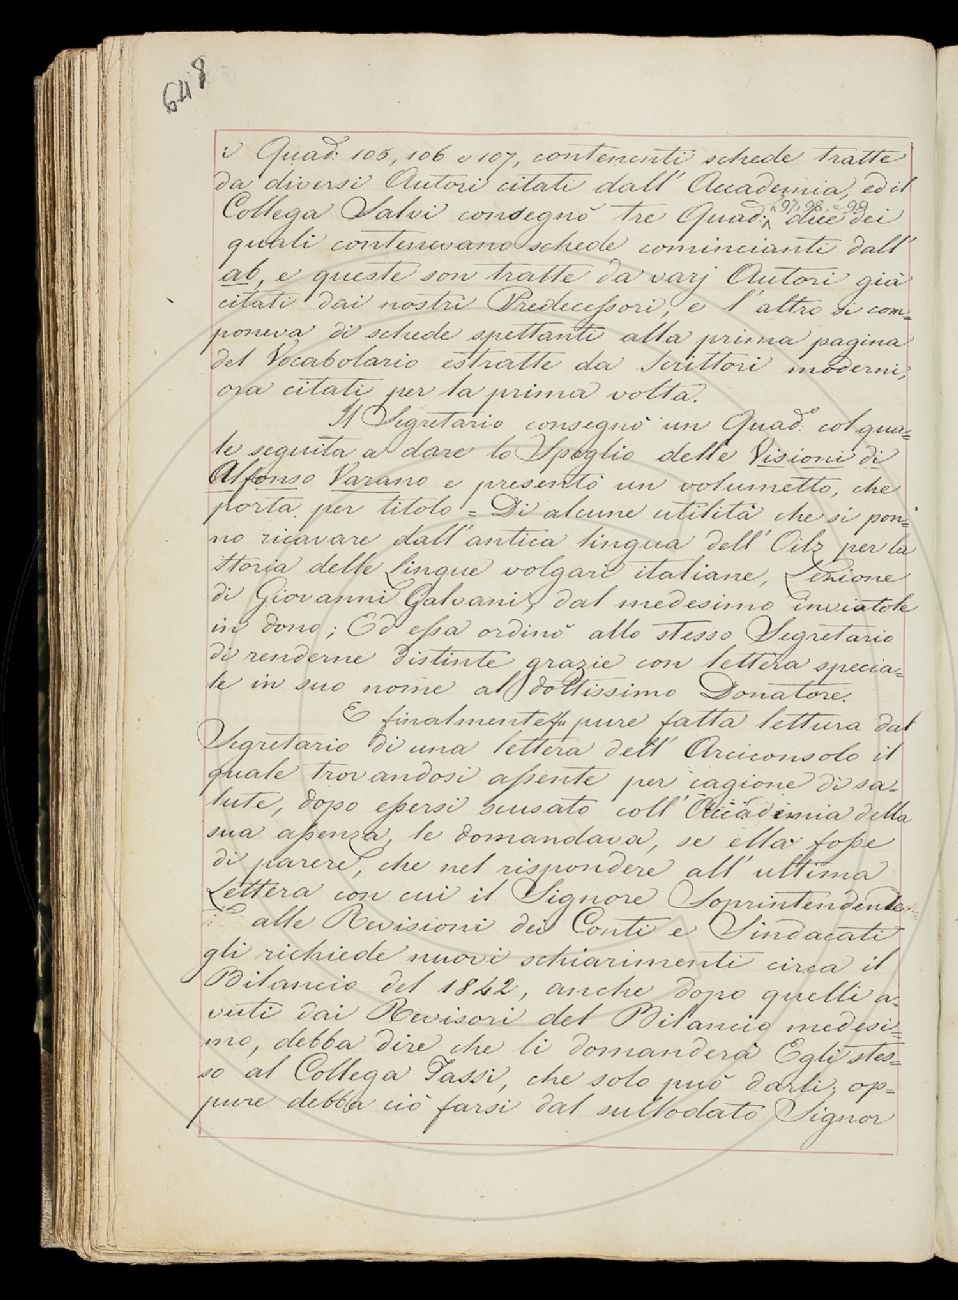 648
i Quad: 105, 106 e 107, contenenti schede tratte
da diversi Autori citati dall' Accademia, ed il
Collega Salvi consegnò tre Quad: 97, 98, e 99 due dei
quali contenevano schede comincianti dall'
ab, e queste son tratte da varj Autori già
citati dai nostri Predecessori, e l' altro si com=
poneva di schede spettanti alla prima pagina
del Vocabolario estratte da Scrittori moderni,
ora citati per la prima volta.
Il Segretario consegnò un Quad.º col qua=
le seguita a dare lo Spoglio delle Visioni di
Alfonso Varano e presentò un volumetto, che
porta per titolo = Di alcune utilità che si pon=
no ricavare dall' antica lingua dell' Oilz per la
Storia delle Lingue volgari italiane, Lezione
di Giovanni Galvani, dal medesimo inviatole
in dono; Ed essa ordinò allo stesso Segretario
di renderne distinte grazie con lettera specia=
le in suo nome al dottissimo Donatore.
E finalmente fu pure fatta lettura dal
Segretario di una lettera dell' Arciconsolo il
quale trovandosi assente per cagione di sa=
lute, dopo essersi scusato coll' Accademia della
sua assenza, le domandava, se ella fosse
di parere, che nel rispondere all' ultima
Lettera con cui il Signore Soprintendente
alle Revisioni dei Conti e Sindacati
gli richiede nuovi schiarimenti circa il
Bilancio del 1842, anche dopo quelli a=
vuti dai Revisori del Bilancio medesi=
mo, debba dire che li domanderà Egli stes=
so al Collega Tassi, che solo può darli; op=
pure debba ciò farsi dal sullodato Signor